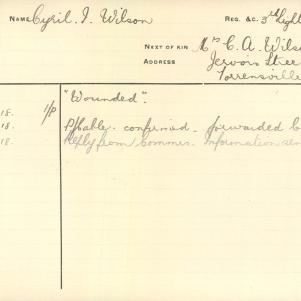 NAME Cyril I. Wilson REG. &C. 3rd Light
NEXT OF KIN Mrs C. A. Wils
ADDRESS Jervois Stree
Torrensville
18. 1/P "Wounded".
18. confirmed. forwarded
18. Reply from Commrs. Information sen